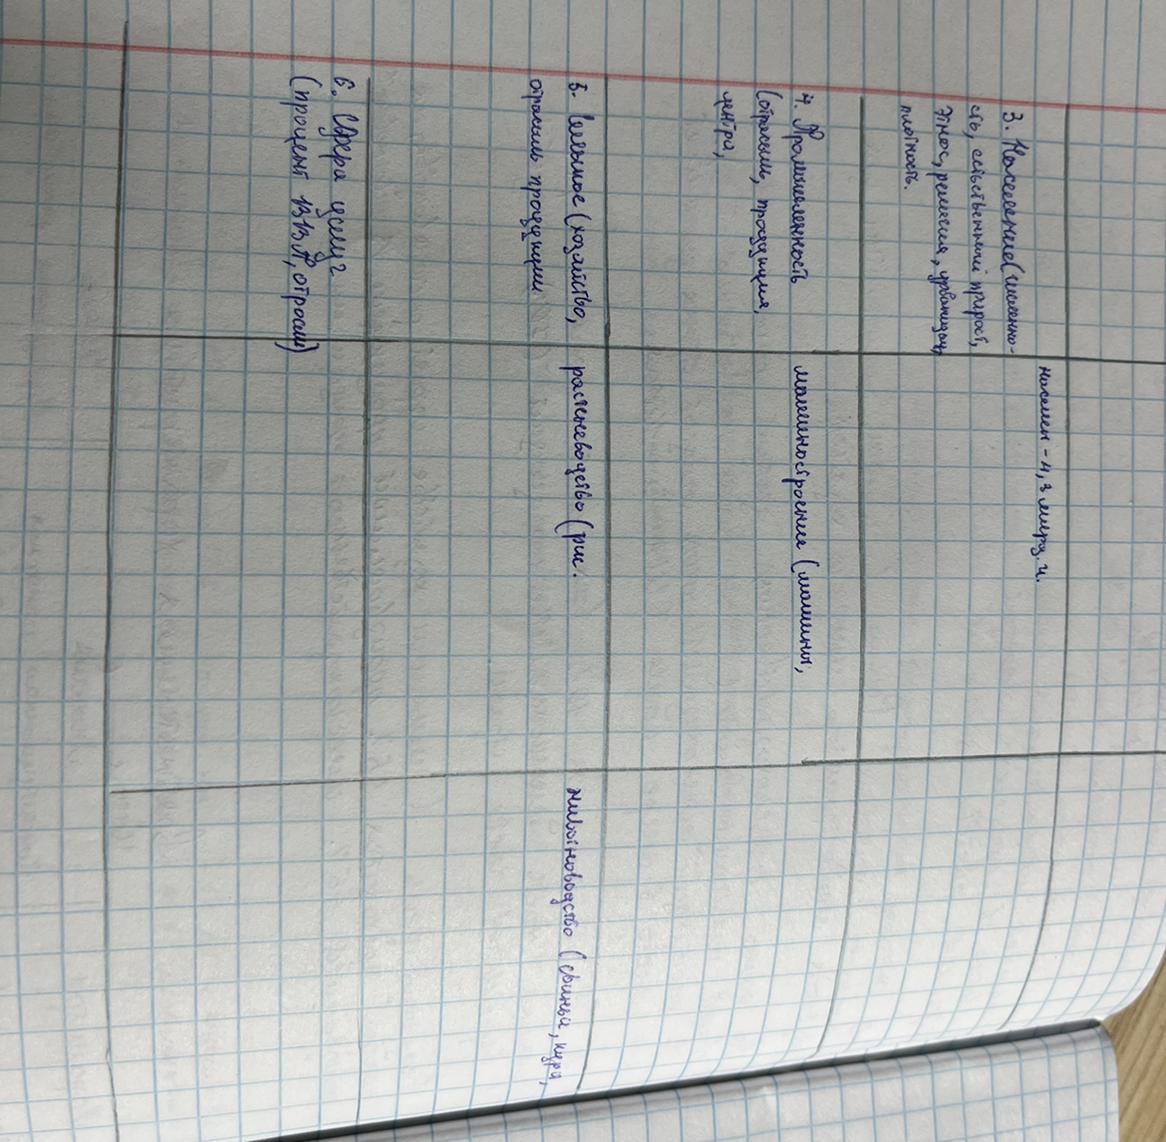 3. Население (численно-
сть, естественный прирост,
этнос, религия, урбанизац,
плотность.
населен - 4,3 млрд. ч.
4. Промышленность
(отрасль, продукция,
центра,
машиностроение (машины,
5. Сельское (хозяйство,
отрасль продукции
растеневодство (рис.
животноводство (свиньи, куры,
6. Сфера услуг
(процент ВВП, отрасли)